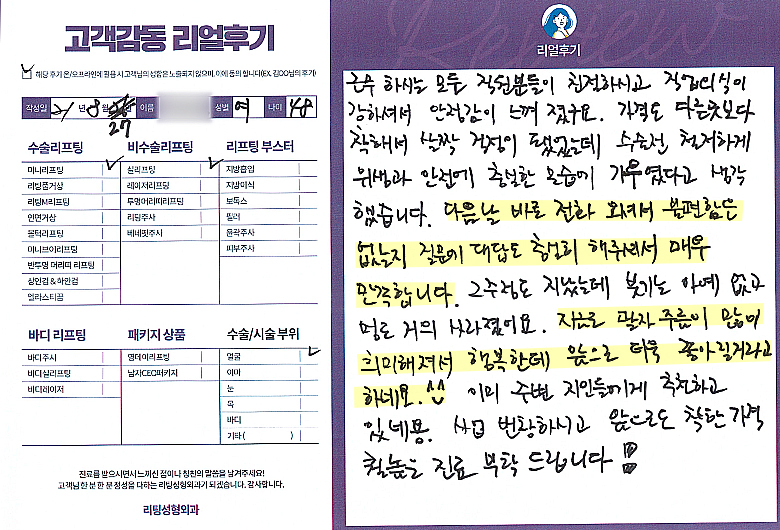 고객감동 리얼후기
해당 후기 온/오프라인에 활용 시 고객님의 성함은 노출되지 않으며, 이에 동의 합니다(EX. 김OO님의 후기)
작성일 21 년 8 월 27 이름 성별 여 나이 48
수술리프팅
미니리프팅
리팅풀거상
리팅M리프팅
안면거상
풀턱리프팅
이너브이리프팅
반투명 머리띠 리프팅
상안검 & 하안검
엘라스티꿈
비수술리프팅
실리프팅
레이저리프팅
투명머리띠리프팅
리팅주사
베네핏주사
리프팅 부스터
지방흡입
지방이식
보톡스
필러
윤곽주사
피부주사
바디 리프팅
바디주사
바디실리프팅
바디레이저
패키지 상품
영데이리프팅
남자CEO패키지
수술/시술 부위
얼굴
이마
눈
목
바디
기타 ( )
진료를 받으시면서 느끼신 점이나 칭찬의 말씀을 남겨주세요!
고객님 한 분 한 분 정성을 다하는 리팅성형외과가 되겠습니다. 감사합니다.
리팅성형외과
Review
리얼후기
근무 하시는 모두 직원분들이 친절하시고 직업의식이
강하셔서 안정감이 느껴 졌구요. 가격도 다른곳보다
착해서 살짝 걱정이 됐었는데 수술전 철저하게
위생과 안전에 충실한 모습에 기우였다고 생각
했습니다. 다음날 바로 전화 와서 불편함은
없는지 질문에 대답도 충실히 해주셔서 매우
만족합니다. 2주정도 지났는데 붓기는 아예 없고
멍도 거의 사라졌어요. 지금도 팔자 주름이 많이
희미해져서 행복한데 앞으로 더욱 좋아질거라고
하네요. ^^ 이미 주변 지인들에게 추천하고
있네용. 사업 번창하시고 앞으로도 착한 가격
질높은 진료 부탁 드립니다!!